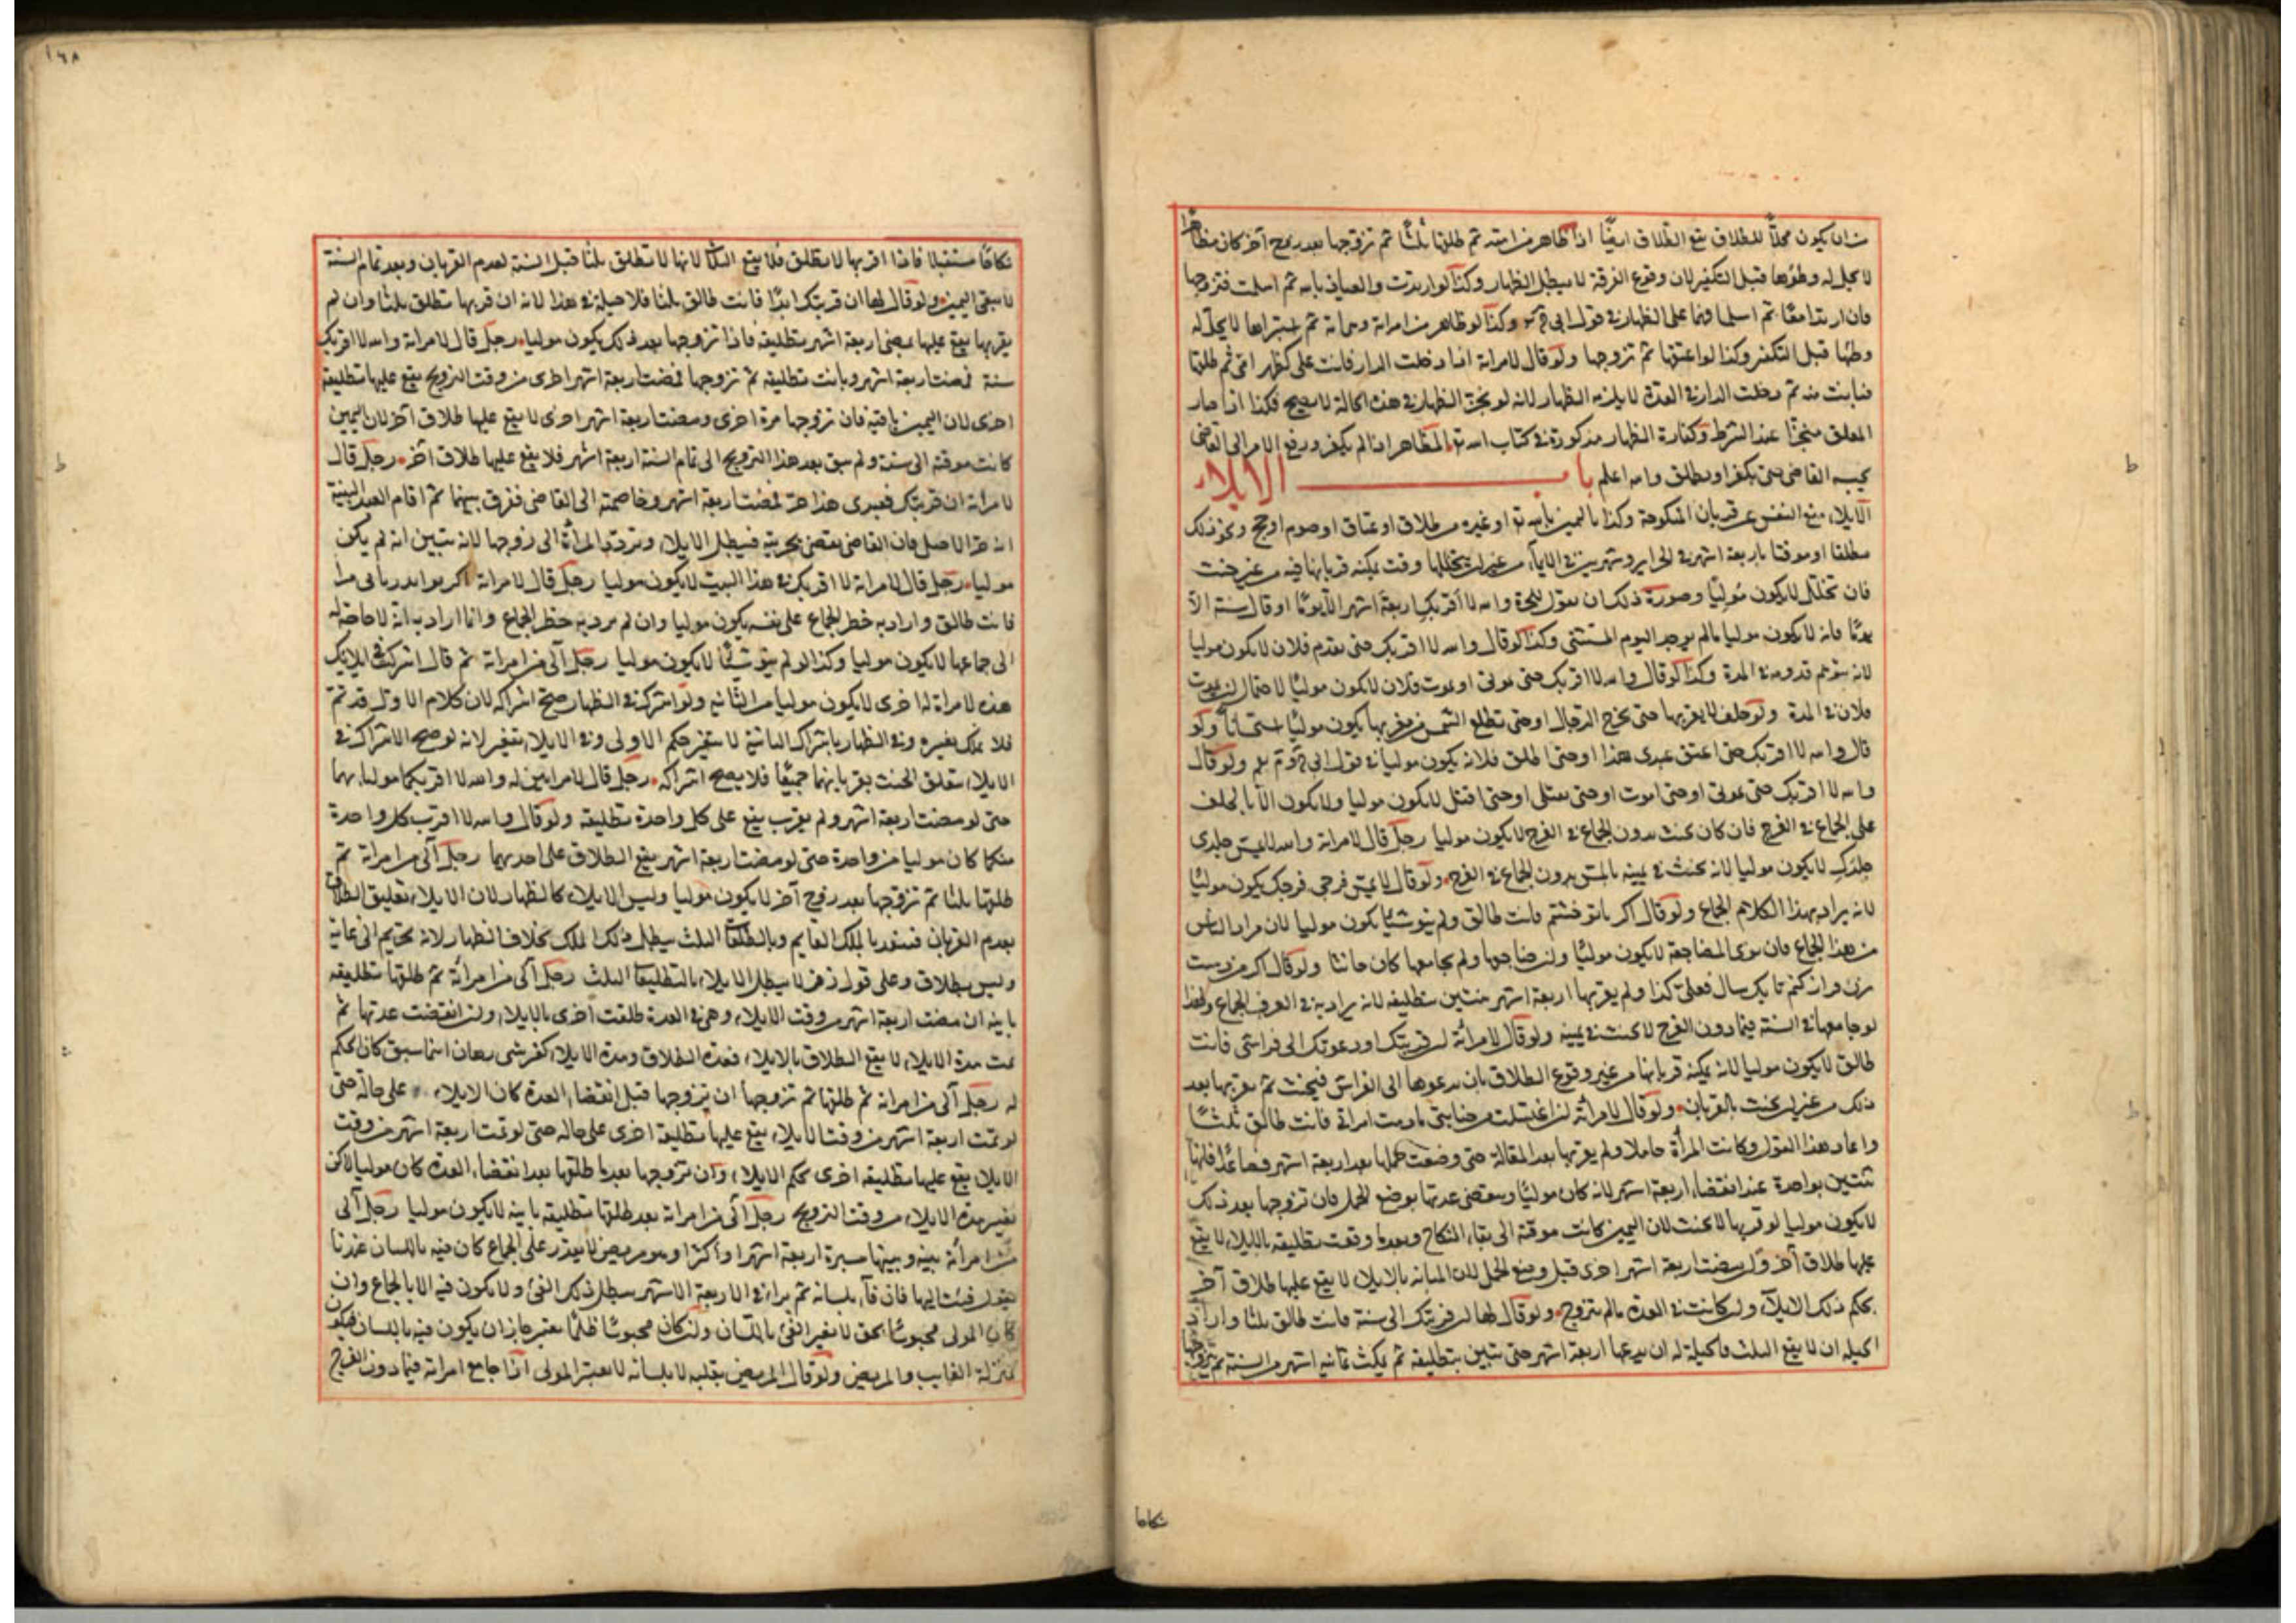 من ان يكون محلا للطلاق يقع الطلاق ايضا اذا ظاهر من امته ثم طلقها ثلثا ثم تزوجها بعد زوج آخر كان مظاهرا
لا يحل له وطؤها قبل التكفير لان وقوع الفرقة لا يبطل الظهار وكذا لو ارتدت والعياذ بالله ثم اسلمت فتزوجها
فان ارتدا معا ثم اسلما فهما على الظهار في قول ابى وكذا لو ظاهر من امراته وهى امة ثم اشتراها لا يحل له
وطئها قبل التكفير وكذا لو اعتقها ثم تزوجها ولو قال لامراته اذا دخلت الدار فانت على كظهر امى ثم طلقها
فبانت منه ثم دخلت الدار في العدة لا يلزمه الظهار لانه لو نجز الظهار في هذه الحالة لا يصح فكذا اذا صار
المعلق منجزا عند الشرط وكفارة الظهار مذكورة في كتاب الله تع المظاهر اذا لم يكفر ورفع الامر الى القاضى
يحبسه القاضى حتى يكفر او يطلق والله اعلم باب الايلاء
الايلاء منع النفس عن قربان المنكوحة وكذا باليمين بالله تع او غيره من طلاق او عتاق او صوم او حج ونحو ذلك
مطلقا او موقتا باربعة اشهر في الحراير وشهرين في الاماء من غير ان يتخللها وقت يمكنه قربانها فيه من غير حنث
فان تخلل لا يكون موليا وصورة ذلك ان يقول للحرة والله لا اقربك اربعة اشهر الا يوما او قال سنة الا
يوما فانه لا يكون موليا ما لم يوجد اليوم المستثنى وكذا لو قال والله لا اقربك حتى يقدم فلان لا يكون موليا
لانه يتوهم قدومه في المدة وكذا لو قال والله لا اقربك حتى تموتى او يموت فلان لا يكون موليا لاحتمال ان يموت
فلان في المدة ولو حلف لا يقربها حتى يخرج الدجال او حتى تطلع الشمس من مغربها يكون موليا استحسانا ولو
قال والله لا اقربك حتى اعتق عبدى هذا او حتى اطلق فلانه يكون موليا في قول ابى ح وم ولو قال
والله لا اقربك حتى تموتى او حتى اموت او حتى تقتلى او حتى اقتل لا يكون موليا ولا يكون الا بالحلف
على الجماع في الفرج فان كان يحنث بدون الجماع في الفرج لا يكون موليا رجل قال لامراته والله لا يمس جلدى
جلدك لا يكون موليا لانه يحنث في يمينه بالمس بدون الجماع في الفرج ولو قال لا يمس فرجى فرجك يكون موليا
لانه يراد بهذا الكلام الجماع ولو قال اكر باتو خسبم فانت طالق ولم ينو شيئا يكون موليا لان مراد الناس
من هذا الجماع فان نوى المضاجعة لا يكون موليا وان ضاجعها ولم يجامعها كان حانثا ولو قال اكر من دست
بزن فراز كنم تا يك سال فعلى كذا ولم يقربها اربعة اشهر تبين بتطليقه لانه يراد به في العرف الجماع ولهذا
لو جامعها في السنة فيما دون الفرج لا يحنث في يمينه ولو قال لامراته ان قربتك او دعوتك الى فراشى فانت
طالق لا يكون موليا لانه يمكنه قربانها من غير وقوع الطلاق بان يدعوها الى الفراش فيحنث ثم يقربها بعد
ذلك من غير ان يحنث بالقربان ولو قال لامراته ان اغتسلت من جنابتى ما دمت امراتى فانت طالق ثلثا
واعاد هذا القول وكانت المرأة حاملا ولم يقربها بعد المقالة حتى وضعت حملها بعد اربعة اشهر فصاعدا فانها
تبين بواحدة عند انقضاء اربعة اشهر لانه كان موليا وينقضى عدتها بوضع الحمل فان تزوجها بعد ذلك
لا يكون موليا لو قربها لا يحنث لان اليمين كانت موقتة الى بقاء النكاح وبعد ما وقعت تطليقه بالايلاء لا يقع
عليها طلاق آخر وان مضت اربعة اشهر اخرى قبل وضع الحمل لان المبانة بالايلاء لا يقع عليها طلاق آخر
بحكم ذلك الايلاء وان كانت في العدة ما لم يتزوج ولو قال لها ان قربتك الى سنة فانت طالق ثلثا واراد
الحيلة ان لا يقع الثلث فالحيلة له ان يدعها اربعة اشهر حتى تبين بتطليقه ثم يمكث ثمانيه اشهر من السنة ثم يتزوجها
نكاحا
١٦٨
نكاحا مستقبلا فاذا قربها لا تطلق فلا يقع الثلث لانها لا تطلق ثلثا قبل السنة لعدم القربان وبعد تمام السنة
لا يبقى اليمين ولو قال لها ان قربتك ابدا فانت طالق ثلثا فلا حيلة في هذا لانه ان قربها تطلق ثلثا وان لم
يقربها يقع عليها بمضى اربعة اشهر تطليقة فاذا تزوجها بعد ذلك يكون موليا رجل قال لامراته والله لا اقربك
سنة فمضت اربعة اشهر وبانت بتطليقه ثم تزوجها فمضت اربعة اشهر اخرى من وقت التزويج يقع عليها تطليقة
اخرى لان اليمين باقية فان تزوجها مرة اخرى ومضت اربعة اشهر اخرى لا يقع عليها طلاق آخر لان اليمين
كانت موقتة الى سنة ولم يبق بعد هذا التزويج الى تمام السنة اربعة اشهر فلا يقع عليها طلاق آخر رجل قال
لامراته ان قربتك فعبدى هذا حر فمضت اربعة اشهر وخاصمته الى القاضى ففرق بينهما ثم اقام العبد البينة
انه حر الاصل فان القاضى يقضى بحريته فيبطل الايلاء وترد المرأة الى زوجها لانه يتبين انه لم يكن
موليا رجل قال لامراته لا اقربك في هذا البيت لا يكون موليا رجل قال لامراته اكر
فانت طالق واراد به حظر الجماع على نفسه يكون موليا وان لم يرد به حظر الجماع وانما اراد به انه لا حاجة له
الى جماعها لا يكون موليا وكذا لو لم ينو شيئا لا يكون موليا رجل آلى من امراته ثم قال اشركت في ايلائك
هذه لامراة له اخرى لا يكون موليا من الثانيه ولو اشرك في الظهار صح اشراكه لان كلام الاول قد تم
فلا يملك تغييره وفى الظهار باشراك الثانية لا يتغير حكم الاولى وفى الايلاء يتغير لانه لو صح الاشراك في
الايلاء يتعلق الحنث بقربانهما جميعا فلا يصح اشراكه رجل قال لامراتين له والله لا اقربكما موليا بهما
حتى لو مضت اربعة اشهر ولم يقرب يقع على كل واحدة تطليقه ولو قال والله لا اقرب كل واحدة
منكما كان موليا من واحدة حتى لو مضت اربعة اشهر يقع الطلاق على احديهما رجل آلى من امراته ثم
طلقها ثلثا ثم تزوجها بعد زوج آخر لا يكون موليا وليس الايلاء كالظهار لان الايلاء تعليق الطلاق
بعدم القربان فيتقيد بالملك القايم وبالطلقات الثلث يبطل ذلك الملك بخلاف الظهار لانه تحريم الى غاية
وليس بطلاق وعلى قول زفر لا يبطل الايلاء بالتطليقات الثلث رجل آلى من امرأته ثم طلقها تطليقه
باينه ان مضت اربعة اشهر من وقت الايلاء وهى في العدة طلقت اخرى بالايلاء وان انقضت عدتها ثم
تمت مدة الايلاء لا يقع الطلاق بالايلاء فعدة الطلاق ومدة الايلاء كفرسى رهان ايهما سبق كان الحكم
له رجل آلى من امراته ثم طلقها ثم تزوجها ان تزوجها قبل انقضاء العدة كان الايلاء على حاله حتى
لو تمت اربعة اشهر من وقت الايلاء يقع عليها تطليقة اخرى على حاله حتى لو تمت اربعة اشهر من وقت
الايلاء يقع عليها تطليقه اخرى بحكم الايلاء وان تزوجها بعد ما طلقها بعد انقضاء العدة كان موليا لكن
يعتبر مدة الايلاء من وقت التزويج رجل آلى من امراته بعد طلقها تطليقه باينه لا يكون موليا رجل آلى
من امرأته بينه وبينها مسيرة اربعة اشهر او اكثر او هو مريض لا يقدر على الجماع كان فيه باللسان عذرنا
يقول فئت اليها فان فاء بلسانه ثم برا في الاربعة الاشهر يبطل ذلك الفئ ولا يكون فيه الا بالجماع وان
كان المولى محبوسا بحق لا يعتبر الفئ باللسان وان كان محبوسا ظلما يعتبر جاز ان يكون فيه باللسان فيكون
بمنزلة الغايب والمريض ولو قال المريض بقلبه لا بلسانه لا يعتبر المولى اذا جامع امراته فيما دون الفرج